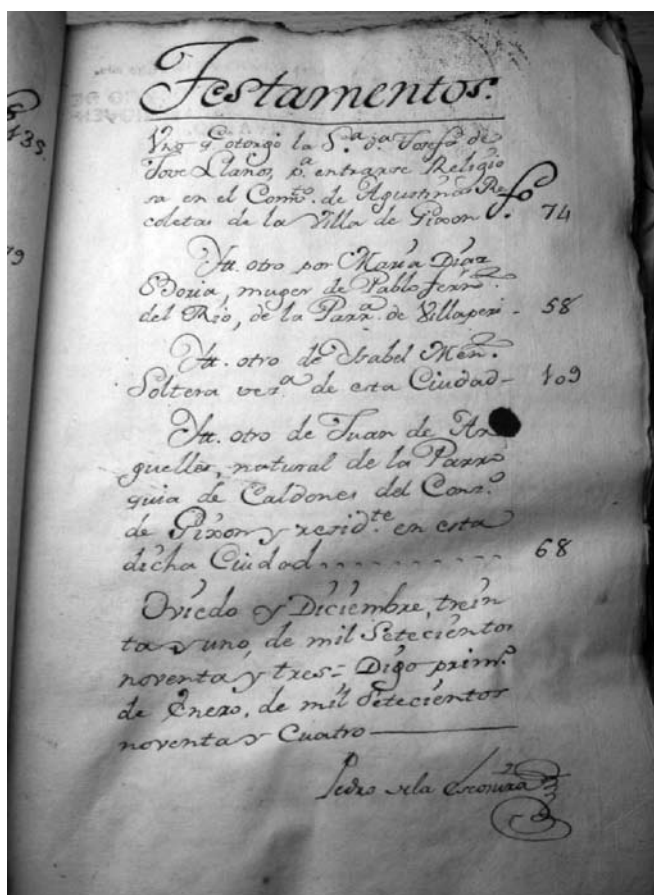 Testamentos.
Vno q.e otorgó la S.ª d.ª Josefa de
Jove Llanos, p.ª entrarse Religio
sa en el Comto. de Agustinas Re
coletas de la Villa de Gixon fo. 74
Itt. otro por María Díaz
Doria, muger de Pablo ferrz.
del Rio, de la Parrª. de Villaperi - 58
Itt. otro de Isabel Men.z
Soltera vezª de esta Ciudad - 109
Itt. otro de Juan de Ar
guelles, natural de la Parro
quia de Caldones del Conz.º
de Gixon y resid.te en esta
dicha Ciudad - - - - - - - - - 68
Oviedo y Diciembre, trein
ta y uno, de mil Setecientos
noventa y tres = Digo prim.º
de Enero, de mil Setecientos
noventa y Cuatro
Pedro dela Escosura
135
79